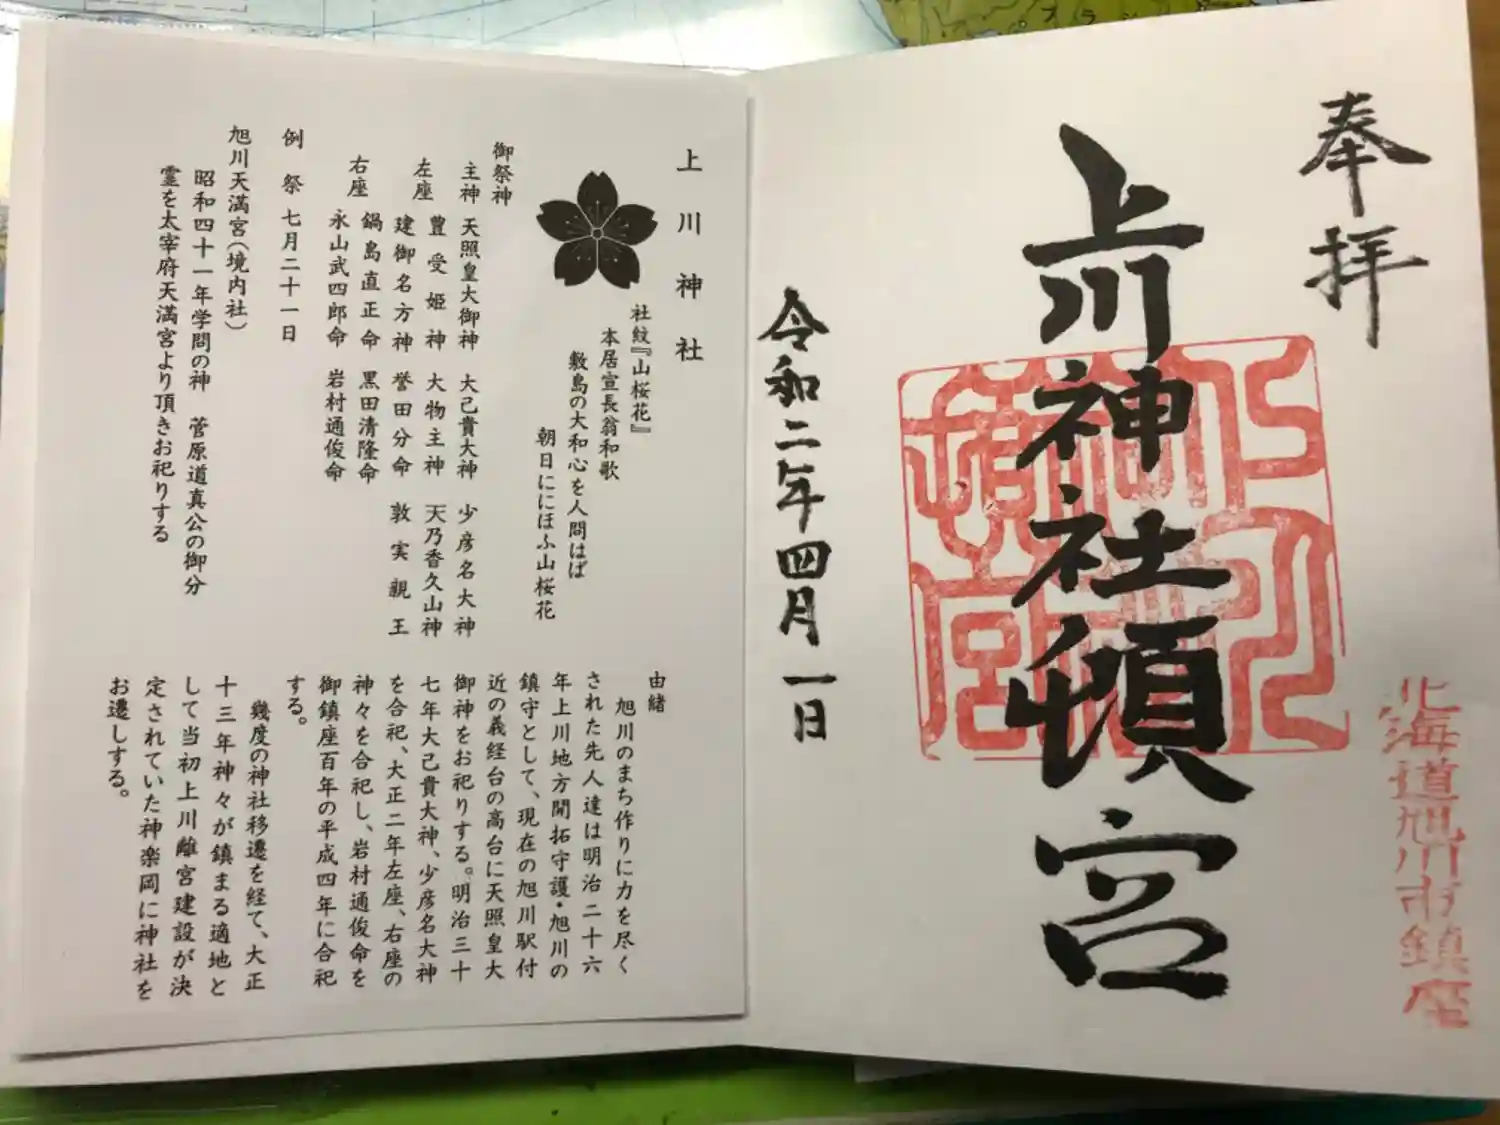 奉拝
上川神社頓宮
北海道旭川市鎮座
令和二年四月一日
上川神社
社紋『山桜花』
本居宣長翁和歌
敷島の大和心を人問はば
朝日ににほふ山桜花
御祭神
主神 天照皇大御神 大己貴大神 少彦名大神
豊受姫神 大物主神 天乃香久山神
左座
建御名方神 誉田分命 敦実親王
鍋島直正命 黒田清隆命
右座
永山武四郎命 岩村通俊命
例祭 七月二十一日
旭川天満宮(境内社)
昭和四十一年学問の神 菅原道真公の御分
霊を太宰府天満宮より頂きお祀りする
由緒
旭川のまち作りに力を尽く
された先人達は明治二十六
年上川地方開拓守護・旭川の
鎮守として、現在の旭川駅付
近の義経台の高台に天照皇大
御神をお祀りする。明治三十
七年大己貴大神、少彦名大神
を合祀、大正二年左座、右座の
神々を合祀し、岩村通俊命を
御鎮座百年の平成四年に合祀
する。
幾度の神社移遷を経て、大正
十三年神々が鎮まる適地と
して当初上川離宮建設が決
定されていた神楽岡に神社を
お遷しする。